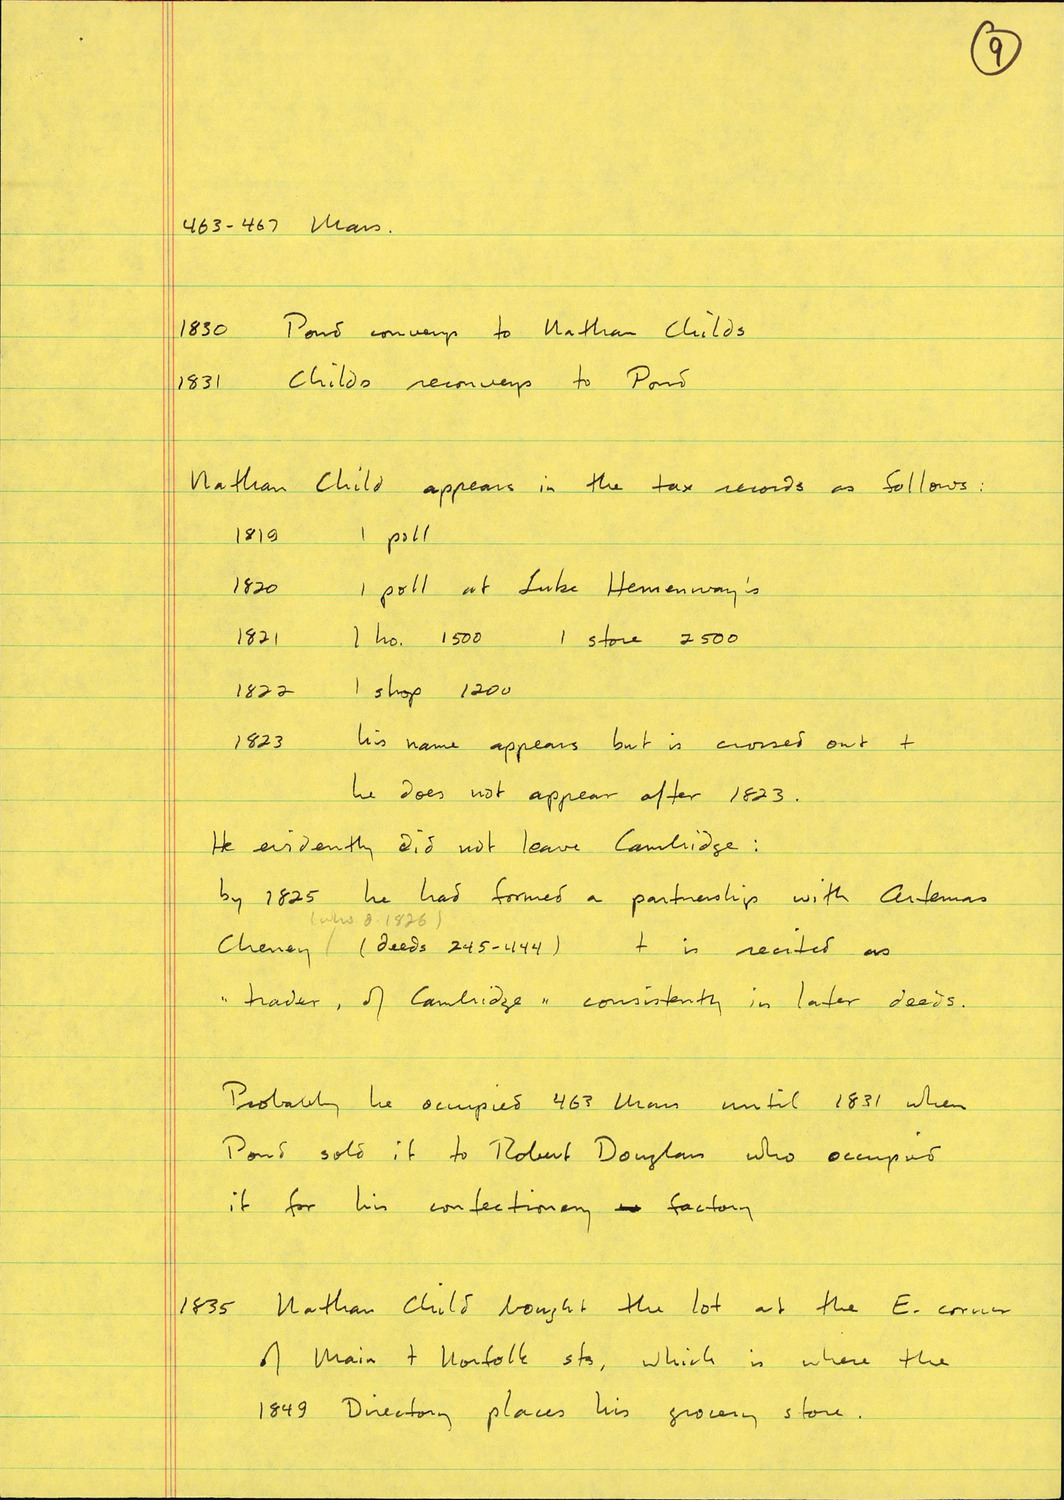 9
463-467 Mass.
1830 Pond conveys to Nathan Childs
1831 Childs reconveys to Pond
Nathan Child appears in the tax records as follows:
1819 1 poll
1820 1 poll at Luke Hemenway's
1821 1 ho. 1500 1 store 2500
1822 1 shop 1200
1823 his name appears but is crossed out +
he does not appear after 1823.
He evidently did not leave Cambridge:
by 1825 he had formed a partnership with Artemas
(who d. 1826)
Cheney (deeds 245-444) + is recited as
"trader, of Cambridge" consistently in later deeds.
Probably he occupied 463 Mass until 1831 when
Pond sold it to Robert Douglass who occupied
it for his confectionery factory
1835 Nathan Child bought the lot at the E. corner
of Main + Norfolk sts, which is where the
1849 Directory places his grocery store.